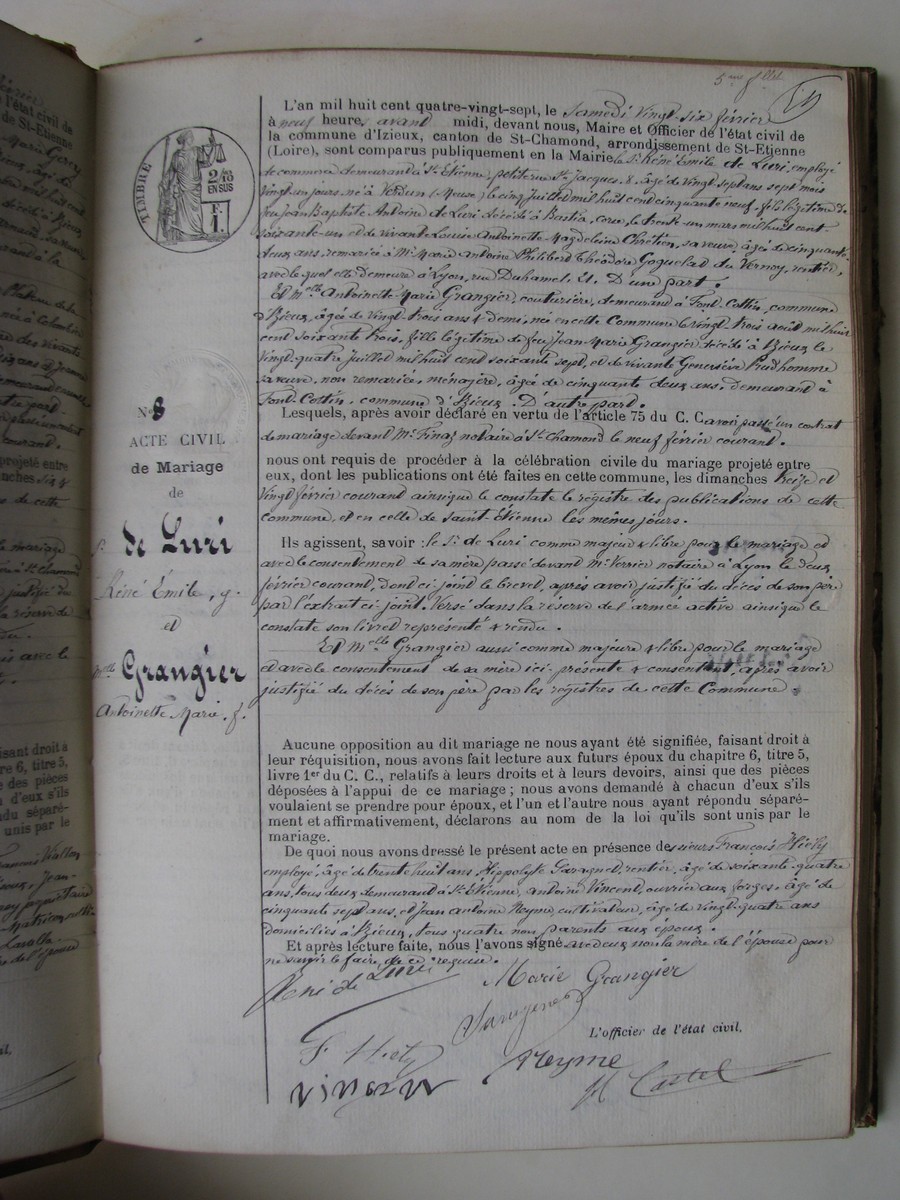 5me fllet
TIMBRE
2/10 EN SUS
F. 1.
L'an mil huit cent quatre-vingt-sept, le Samedi Vingt six février
à neuf heures avant midi, devant nous, Maire et Officier de l'état civil de
la commune d'Izieux, canton de St-Chamond, arrondissement de St-Etienne
(Loire), sont comparus publiquement en la Mairie le Sr Réné Emile de Luri, employé
de commerce demeurant à St Etienne, petite rue St Jacques 8, âgé de Vingt sept ans sept mois
Vingt un jours, né à Verdun (Meuse) le cinq juillet mil huit cent cinquante neuf, fils légitime de
feu Jean Baptiste Antoine de Luri décédé à Bastia, Corse, le trente un mars mil huit cent
soixante-un et de vivante Louise Antoinette Magdeleine Chrétien, sa veuve, âgée de cinquante
deux ans, remariée à Mr Marie Antoine Philibert Théodore Goguelat du Vernoy, rentier,
avec lequel elle demeure à Lyon, rue Duhamel, 21. D'une part.
Et Melle Antoinette Marie Grangier, couturière, demeurant à Font-Cottin, commune
d'Izieux, âgée de Vingt-trois ans & demi, née en cette Commune le vingt trois août mil huit
cent soixante trois, fille légitime de feu Jean Marie Grangier décédé à Izieux le
Vingt quatre Juillet mil huit cent soixante sept, et de vivante Geneviève Prudhomme
sa veuve, non remariée, ménagère, âgée de cinquante deux ans, demeurant à
Font-Cottin, commune d'Izieux. D'autre part.
Lesquels, après avoir déclaré en vertu de l'article 75 du C. C. avoir passé un contrat
de mariage devant Mr Finaz notaire à St Chamond le neuf février courant.
nous ont requis de procéder à la célébration civile du mariage projeté entre
eux, dont les publications ont été faites en cette commune, les dimanches treize et
Vingt février courant ainsi que le constate le registre des publications de cette
commune, et en celle de Saint-Etienne les mêmes jours.
Ils agissent, savoir : le Sr de Luri comme majeur & libre pour le mariage et
avec le consentement de sa mère passé devant Mr Vernier notaire à Lyon le deux
février courant, dont ci-joint le brevet, après avoir justifié du décès de son père
par l'extrait ci-joint. Versé dans la réserve de l'armée active ainsi que le
constate son livret représenté & rendu.
Et Melle Grangier aussi comme majeure & libre pour le mariage
et avec le consentement de sa mère ici-présente & consentant, après avoir
justifié du décès de son père par les registres de cette Commune.
Aucune opposition au dit mariage ne nous ayant été signifiée, faisant droit à
leur réquisition, nous avons fait lecture aux futurs époux du chapitre 6, titre 5,
livre 1er du C. C., relatifs à leurs droits et à leurs devoirs, ainsi que des pièces
déposées à l'appui de ce mariage ; nous avons demandé à chacun d'eux s'ils
voulaient se prendre pour époux, et l'un et l'autre nous ayant répondu séparé-
ment et affirmativement, déclarons au nom de la loi qu'ils sont unis par le
mariage.
De quoi nous avons dressé le présent acte en présence des sieurs François Hiély
employé, âgé de trente huit ans, Hippolyte, rentier, âgé de soixante-quatre
ans, tous deux demeurant à St Etienne, Antoine Vincent, ouvrier aux forges, âgé de
cinquante sept ans, et Jean Antoine Neyme, cultivateur, âgé de vingt-quatre ans
domiciliés à Izieux, tous quatre non parents aux époux.
Et après lecture faite, nous l'avons signé avec eux non la mère de l'épouse pour
ne savoir le faire de ce requise.
René de Luri
Marie Grangier
F Hiely
L'officier de l'état civil,
Vincent
Neyme
Castel
No 8
ACTE CIVIL
de Mariage
de
Sr de Luri
Réné Emile, g.
et
Melle Grangier
Antoinette Marie, f.